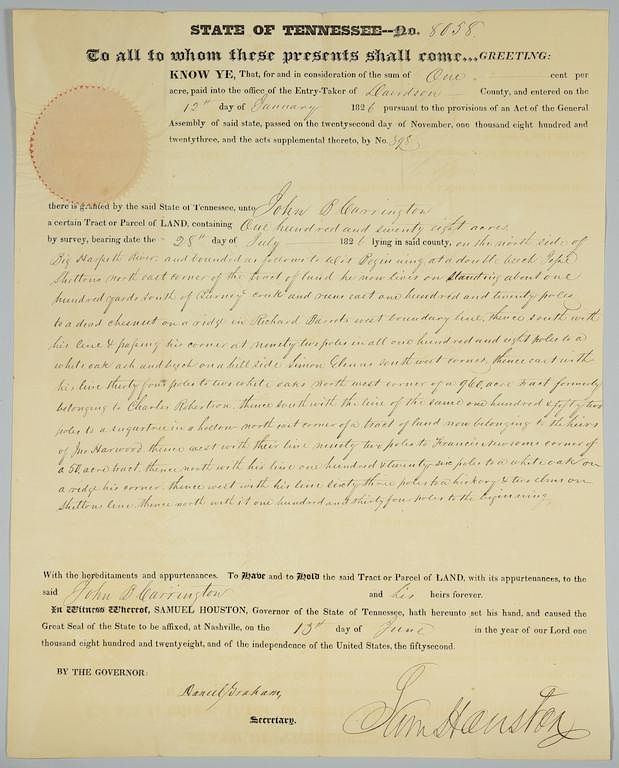 STATE OF TENNESSEE--No. 8058.
To all to whom these presents shall come...GREETING:
KNOW YE, That, for and in consideration of the sum of One cent per
acre, paid into the office of the Entry-Taker of Davidson County, and entered on the
12th day of January 1826 pursuant to the provisions of an Act of the General
Assembly of said state, passed on the twentysecond day of November, one thousand eight hundred and
twentythree, and the acts supplemental thereto, by No. 398
there is granted by the said State of Tennessee, unto John B Carrington
a certain Tract or Parcel of LAND, containing One hundred and seventy eight acres
by survey, bearing date the 28th day of July 1826 lying in said county, on the north side of
Big Harpeth River and bounded as follows to wit: Beginning at a double beech Jesse
Sheltons north east corner of the tract of land he now lives on standing about one
hundred yards south of creek and runs east one hundred and twenty poles
to a dead chesnut on a ridge in Richard west boundary line, thence south with
his line & passing his corner at ninety two poles in all one hundred and eight poles to a
white oak ash and beech on a hill side Simon Glenns south west corner, thence east with
his line thirty four poles to two white oaks north west corner of a 960 acre tract formerly
belonging to Charles Robertson. thence south with the line of the same one hundred & fifty two
poles to a sugartree in a hollow north east corner of a tract of land now belonging to the heirs
of Jno Harwood thence west with their line ninety two poles to Francis Newsoms corner of
a 50 acre tract. thence north with his line one hundred & twenty six poles to a white oak on
a ridge his corner. thence west with his line sixty three poles to a hickory & two elms on
Sheltons line. thence north with it one hundred and thirty four poles to the beginning
With the hereditaments and appurtenances. To Have and to Hold the said Tract or Parcel of LAND, with its appurtenances, to the
said John B Carrington and his heirs forever.
In Witness Whereof, SAMUEL HOUSTON, Governor of the State of Tennessee, hath hereunto set his hand, and caused the
Great Seal of the State to be affixed, at Nashville, on the 13th day of June in the year of our Lord one
thousand eight hundred and twentyeight, and of the independence of the United States, the fiftysecond.
BY THE GOVERNOR:
Daniel Graham,
Secretary.
Sam Houston